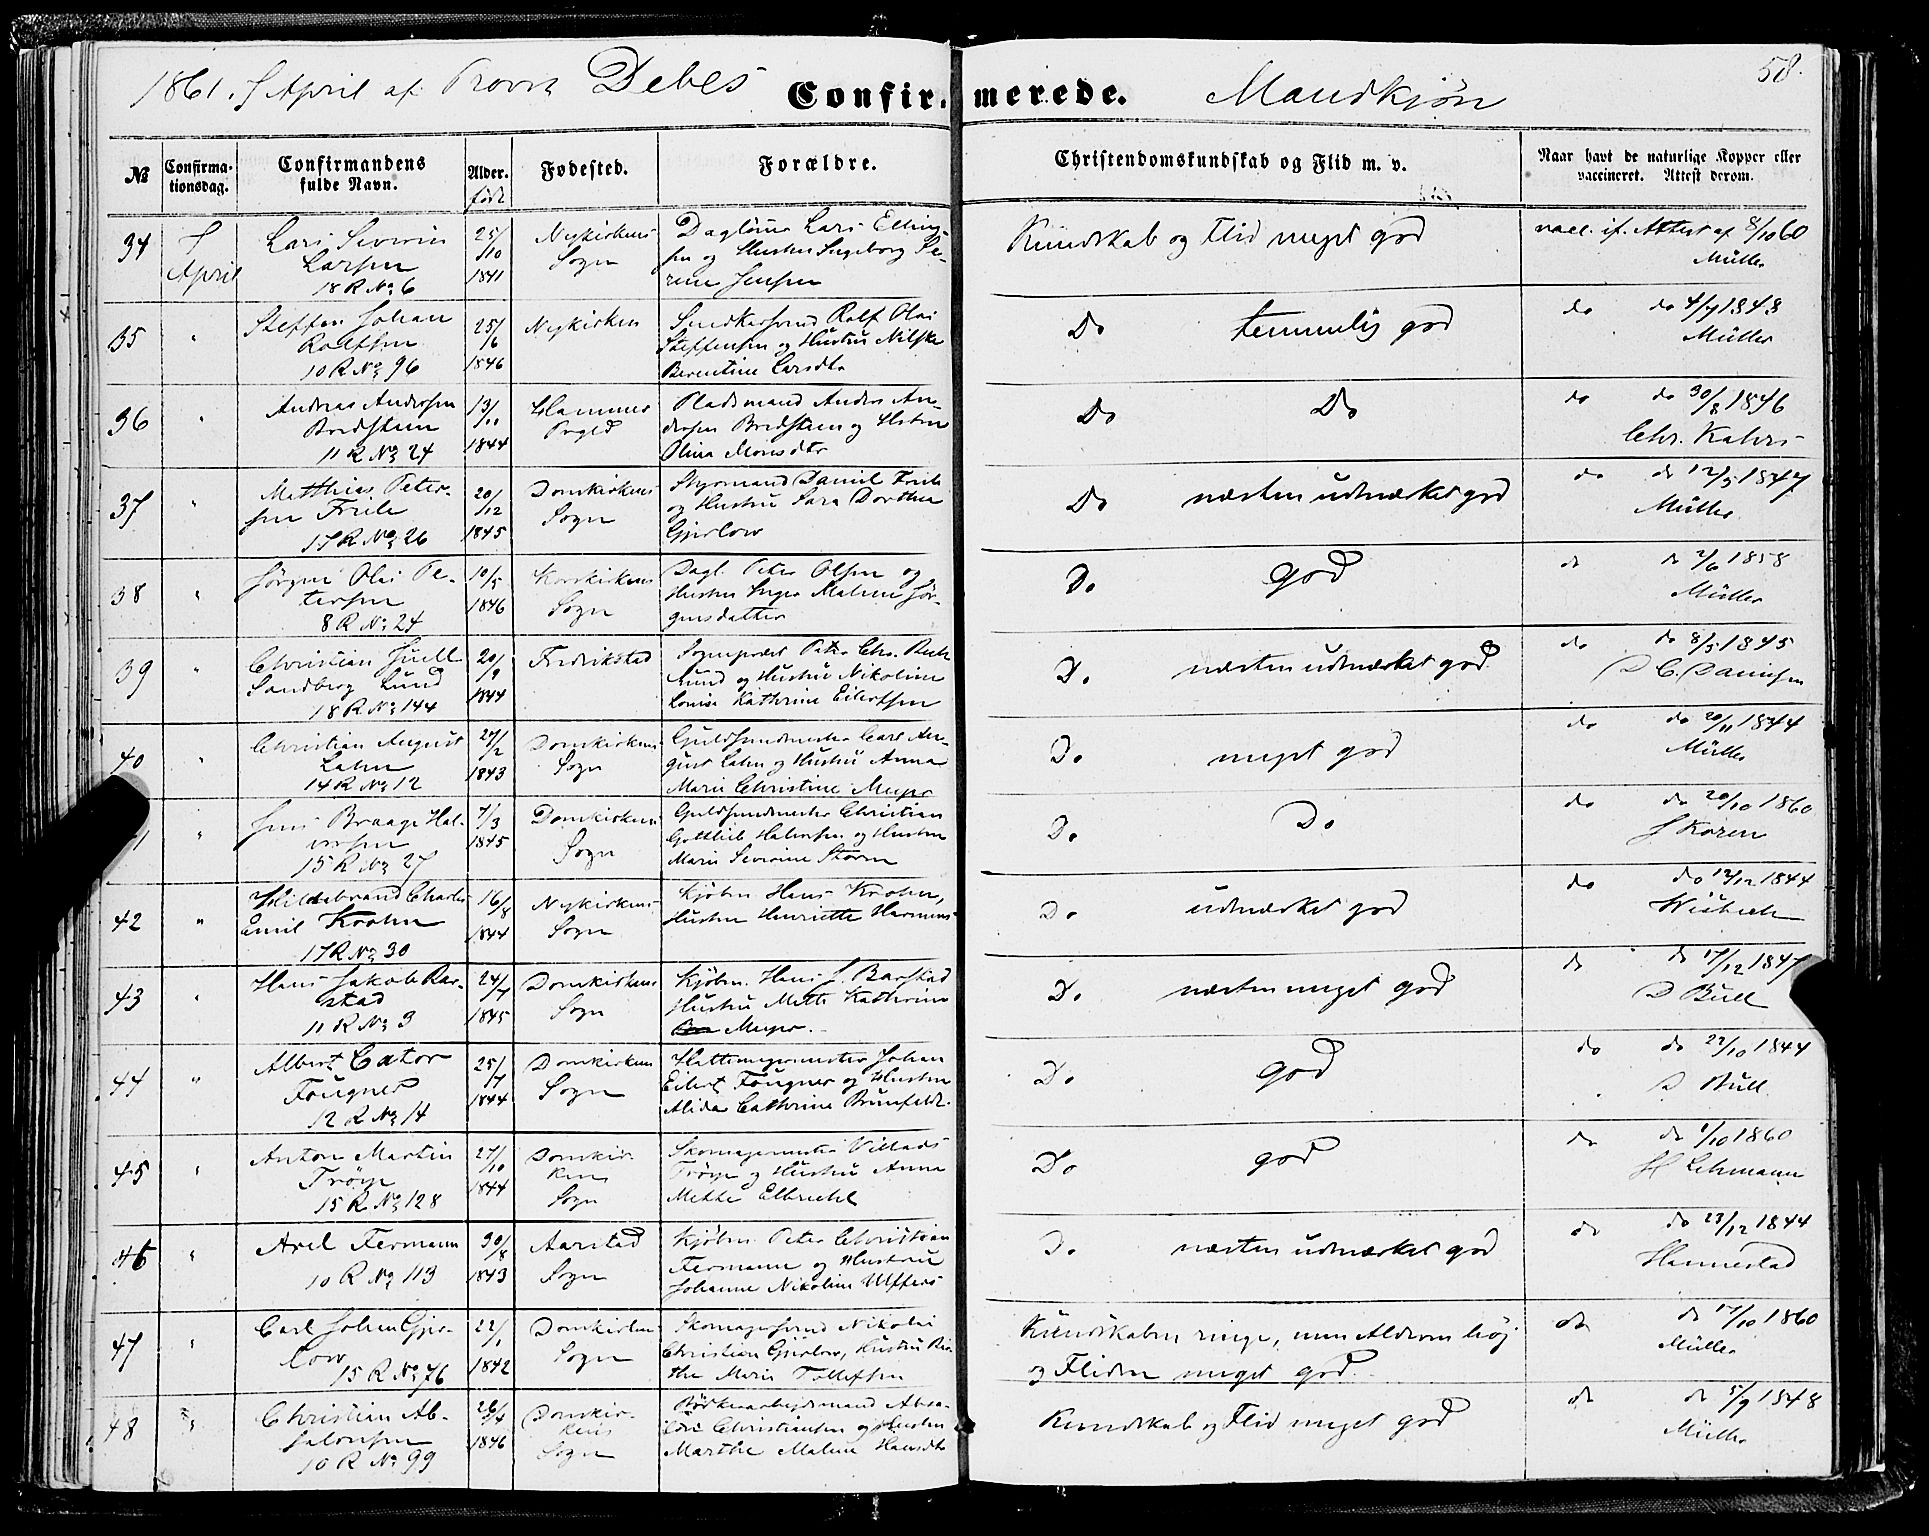 1861. 7 April af Provst Debes
Confirmerede.
Mandkjøn
58.
№
Confirmationsdag.
Confirmandens fulde Navn.
Alder.
født
Fødested.
Forældre.
Christendomskundskab og Flid m. v.
Naar havt de naturlige Kopper eller vaccineret. Attest derom.
34 7 April Lars Severin Larsen 18 R No 6 25/10 1841 Nykirkens Sogn Dagløner Lars Elling-
sen og Hustru Ingeborg Se-
rine Jensen Kundskab og Flid meget god vacc. if. Attest af 8/10 60 Müller
35 " Steffen Johan Rolfsen 10 R No 96 25/6 1846 Nykirken Snedkersvend Rolf Olai
Steffensen og Hustru Nilske
Berentine Larsdtr Do temmelig god do do 4/9 1848 Müller
36 " Andreas Andersen Bredsteen 11 R No 24 13/11 1844 Hammer Prgld Pladsmand Anders An-
dersen Bredsteen og Hustru
Olina Monsdtr Do Do do do 30/8 1846 Chr. Kahrs
37 " Matthias Peter-
sen Friele 17 R No 26 20/12 1845 Domkirkens Sogn Styrmand Daniel Friele
og Hustru Sara Dorthea
Gjerlow Do næsten udmærket god do do 12/5 1847 Müller
38 " Jörgen Olai Pe-
tersen 8 R No 24 10/5 1846 Korskirkens Sogn Dagl. Peter Olsen og
Hustru Inger Malene Jör-
gensdatter Do god do do 2/6 1858 Müller
39 " Christian Juell
Sandberg Lund 18 R No 144 20/9 1844 Fredrikstad Sognepræst Peter Chr.
Lund og Hustru Nikoline
Louise Kathrine Eilertsen Do næsten udmærket god do do 8/5 1845 D C. Danielsen
40 " Christian August
Lahn 14 R No 12 27/2 1843 Domkirkens Sogn Guldsmedmester Carl Au-
gust Lahn og Hustru Anna
Marie Christine Meyer Do meget god do do 20/11 1844 Müller
41 " Jens Braage Hal-
vorsen 15 R No 27 7/3 1845 Domkirkens Sogn Guldsmedmester Christian
Gottlieb Halvorsen og Hustru
Marie Severine Storm Do Do do do 20/10 1860 J Koren
42 " Hildebrand Charles
Emil Krohn 17 R No 30 16/8 1844 Nykirkens Sogn Kjöbm Hans Krohn,
Hustru Henriette Harmens Do udmærket god do do 12/12 1844
43 " Hans Jakob Bar-
stad 11 R No 3 24/7 1845 Domkirkens Sogn Kjöbm. Hans J. Barstad
Hustru Mette Kathrine
Meyer. Do næsten meget god do do 17/12 1847 D Bull
44 " Albert Cator
Fougner 12 R No 14 25/7 1844 Domkirken Sogn Hattemagermester Johan
Eilert Fougner og Hustru
Alida Cathrine Brunfeldt. Do god do do 22/10 1844 D Bull.
45 " Anton Martin
Tröye 15 R No 128 27/10 1844 Domkir-
kens
Sogn Skomagermester Villads
Tröye og Hustru Anna
Mette Elbrecht Do god do do 1/10 1860 H Lehmann
46 " Axel Fermann 10 R No 113 30/8 1843 Aarstad Sogn Kjöbm. Peter Christian
Fermann og Hustrue
Johanne Nikoline Ulffers Do næsten udmærket god do do 23/12 1844 Hannestad
47 " Carl Johan Gjer-
low 15 R No 76 22/1 1842 Domkirken Sogn Skomagersvend Nikolai
Christian Gjerlow, Hustru Bir-
the Marie Tollefsen Kundskaben ringe, men Alderen høj
og Fliden meget god. do do 17/10 1860 Müller
48 " Christian Ab-
salonsen 10 R No 99 26/4 1846 Domkir-
kens
Sogn Absa-
lon Christiansen og Hustru
Marthe Malene Hansdtr Kundskab og Flid meget god do do 5/9 1848 Müller